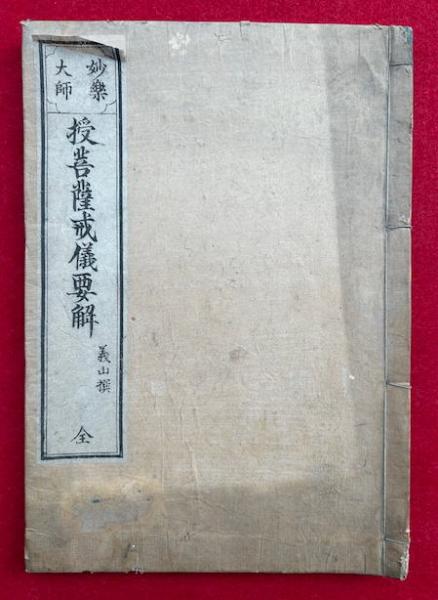 妙樂
大師
授菩薩戒儀要解
義山撰
全